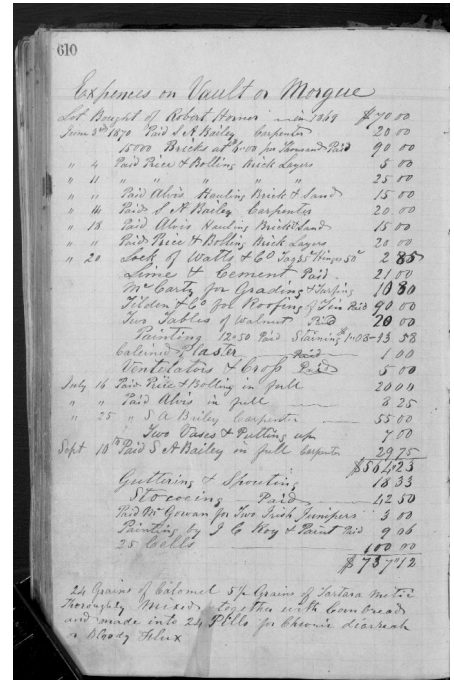 610
Expences on Vault or Morgue
Lot Bought of Robert Hornor in 1869 $70 00
June 3rd 1870 Paid S A Bailey Carpenter 20 00
15000 Bricks at 6.00 per Thousand Paid 90 00
" 4 Paid Rice & Bolling Brick Layers 5 00
" 11 " " " " " 25 00
" " Paid Alvis Hauling Brick & Sand 15 00
" 14 Paid S A Bailey Carpenter 20 00
" 18 Paid Alvis Hauling Brick & Sand 15 00
" " Paid Rice & Bolling Brick Layers 20 00
" 20 Lock of Watts & Co Hinges 50c 2 85
Lime & Cement Paid 21 00
McCarty for Grading & Turfing 10 80
Tilden & Co for Roofing of Tin Paid 90 00
Two Tables of Walnut Paid 20 00
Painting 12.50 Paid Staining 1.08 13 58
Calcined Plaster Paid 1 00
Ventelators & Crop Paid 5 00
July 16 Paid Rice & Bolling in full 20 00
" " Paid Alvis in full 3 25
" 25 " S A Bailey Carpenter 55 00
" Two Vases & Putting up 7 00
Sept 10th Paid S A Bailey in full Carpenter 29 75
$564 23
Guttering & Spouting 18 33
Stuccoing Paid 42 50
Paid McGowan for Two Irish Junipers 3 00
Painting by J C Noy & Paint Paid 9 06
25 Cells 100 00
$737 12
24 Grains of Calomel 5 Grains of Tartara Metic
Thoroughly Mixed together with Corn Bread
and made into 24 Pills for Chronic diareah
or Bloody Flux